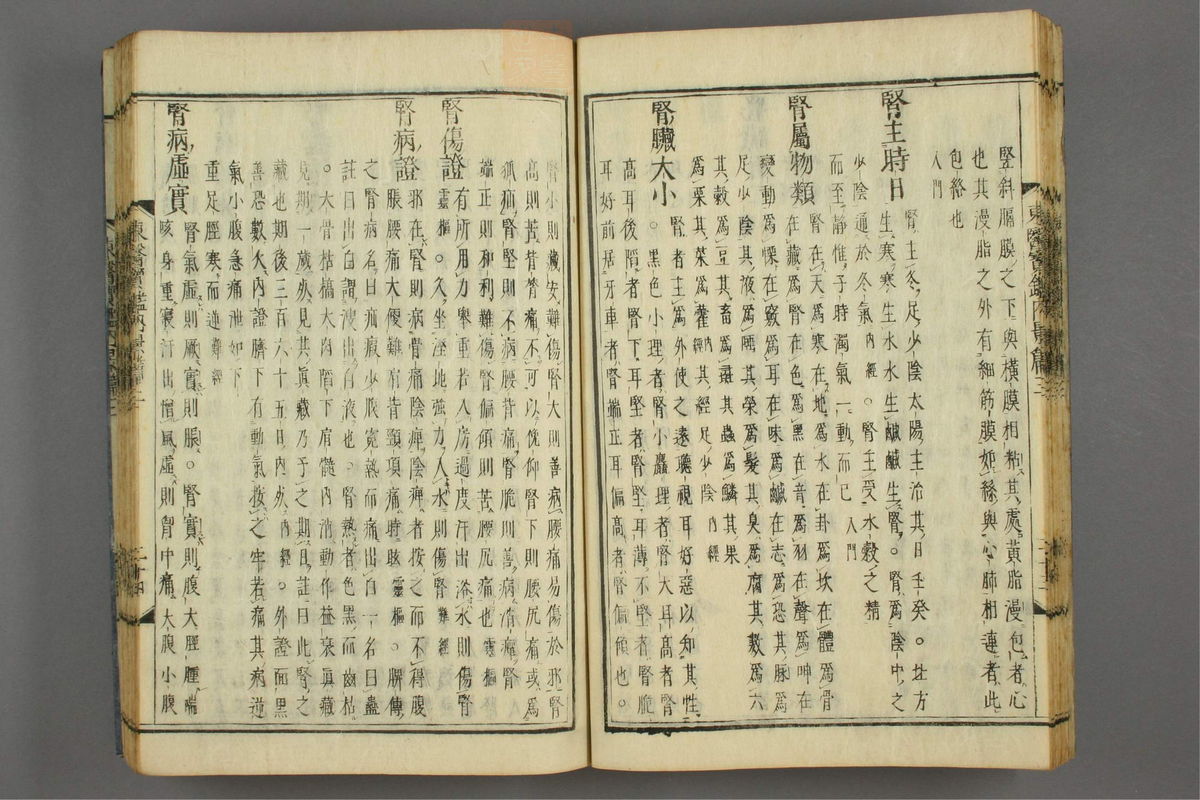 竪斜膈膜之下與橫膜相粘其處黃脂漫包者心
也其漫脂之外有細筋膜如絲與心肺相連者此
包絡也
入門
腎主時日
腎主冬足少陰太陽主治其日壬癸○北方
生寒寒生水水生鹹鹹生腎○腎爲陰中之
少陰通於冬氣內經○腎主受水穀之精
而至靜惟子時濁氣一動而已入門
腎屬物類
腎在天爲寒在地爲水在卦爲坎在體爲骨
在藏爲腎在色爲黑在音爲羽在聲爲呻在
變動爲慄在竅爲耳在味爲鹹在志爲恐其脉爲
足少陰其液爲唾其榮爲髮其臭爲腐其數爲六
其穀爲豆其畜爲彘其蟲爲鱗其果
爲栗其菜爲藿內經其經足少陰內經
腎臟大小
腎者主爲外使之遠聽視耳好惡以知其性
○黑色小理者腎小麤理者腎大耳高者腎
高耳後陷者腎下耳堅者腎堅耳薄不堅者腎脆
耳好前居牙車者腎端正耳偏高者腎偏傾也○
腎小則藏安難傷腎大則善病腰痛易傷於邪腎
高則苦背膂痛不可以俛仰腎下則腰尻痛或爲
狐疝腎堅則不病腰背痛腎脆則善病消癉腎
端正則和利難傷腎偏傾則苦腰尻痛也靈樞
腎傷證
有所用力擧重若入房過度汗出浴水則傷腎
靈樞○久坐濕地強力入水則傷腎難經
腎病證
邪在腎則病骨痛陰痺陰痺者按之而不得腹
脹腰痛大便難肩背頸項痛時眩靈樞○脾傳
之腎病名曰疝瘕少腹寃熱而痛出白一名曰蠱
註曰出白謂溲出白液也○腎熱者色黑而齒枯
○大骨枯槁大肉陷下肩髓內消動作益衰眞藏
見期一歲死見其眞藏乃予之期日註曰此腎之
藏也期後三百六十五日內死內經○外證面黑
善恐數欠內證臍下有動氣按之牢若痛其病逆
氣小腹急痛泄如下
重足脛寒而逆難經
腎病虛實
腎氣虛則厥實則脹○腎實則腹大脛腫喘
咳身重寢汗出憎風虛則胷中痛大腹小腹